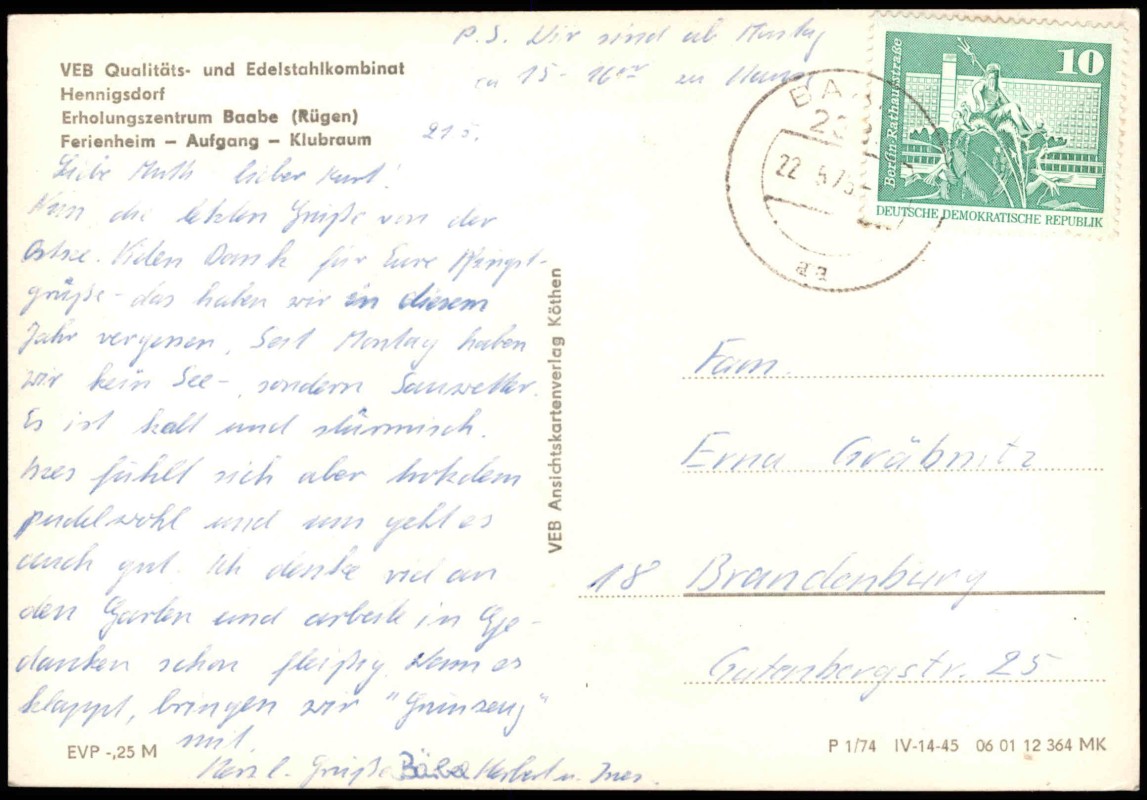 P.S. Wir sind ab Montag
ca 15-16 00 zu Hause
VEB Qualitäts- und Edelstahlkombinat
Hennigsdorf
Erholungszentrum Baabe (Rügen)
Ferienheim – Aufgang – Klubraum
21.5.
Liebe Mutti, lieber Kurt!
Nun die letzten Grüße von der
Ostsee. Vielen Dank für Eure Pfingst-
grüße - das haben wir in diesem
Jahr vergessen. Seit Montag haben
wir kein See-, sondern Sauwetter.
Es ist kalt und stürmisch.
Ines fühlt sich aber trotzdem
pudelwohl und uns geht es
auch gut. Ich denke viel an
den Garten und arbeite in Ge-
danken schon fleißig. Wenn es
klappt, bringen wir "Grünzeug"
mit.
Herzl. Grüße Herbert u. Ines.
EVP -,25 M
VEB Ansichtskartenverlag Köthen
10
Berlin-Rathausstraße
DEUTSCHE DEMOKRATISCHE REPUBLIK
22
22.5.75
aa
Fam.
Erna Gräbnitz
18 Brandenburg
Gutenbergstr. 25
P 1/74 IV-14-45 06 01 12 364 MK